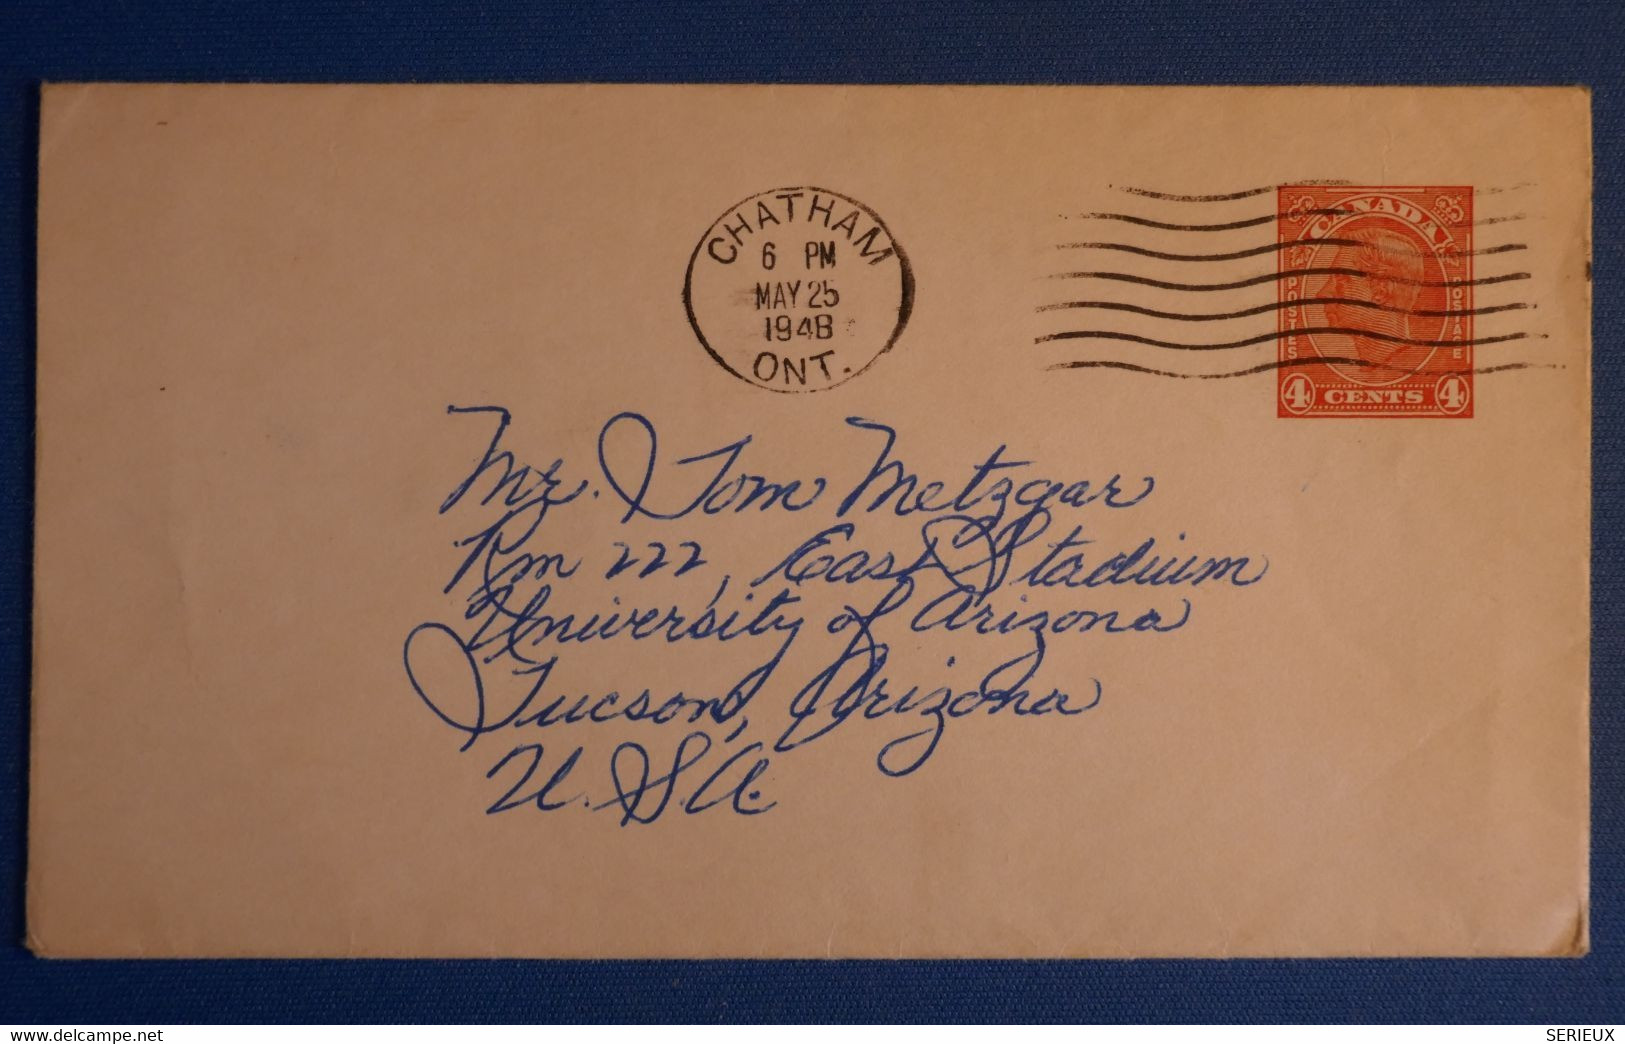 CHATHAM
6 PM
MAY 25
1948
ONT.
CANADA
POSTES
POSTAGE
4 CENTS 4
Mr. Tom Metzgar
Rm 222, East Stadium
University of Arizona
Tucson, Arizona
U.S.A.
www.delcampe.net
SERIEUX